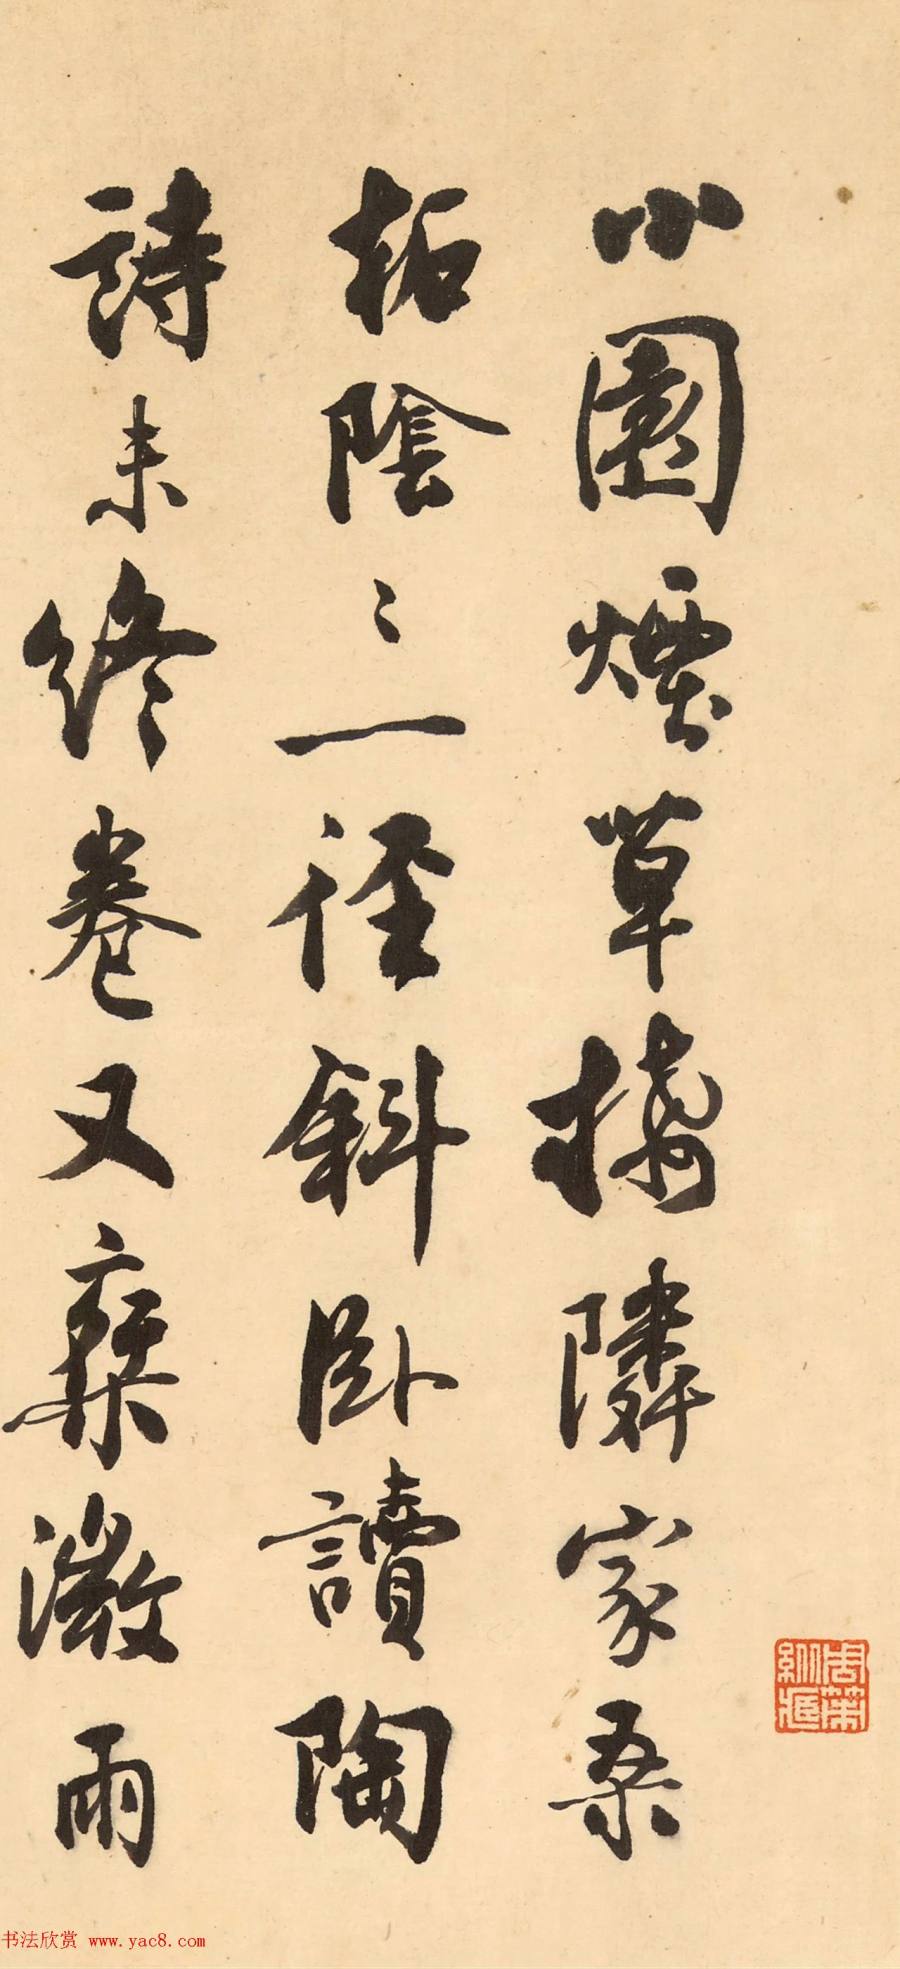 小園煙草接隣家桑
柘陰〻一徑斜臥讀陶
詩未終卷又乗微雨
书法欣赏 www.yac8.com